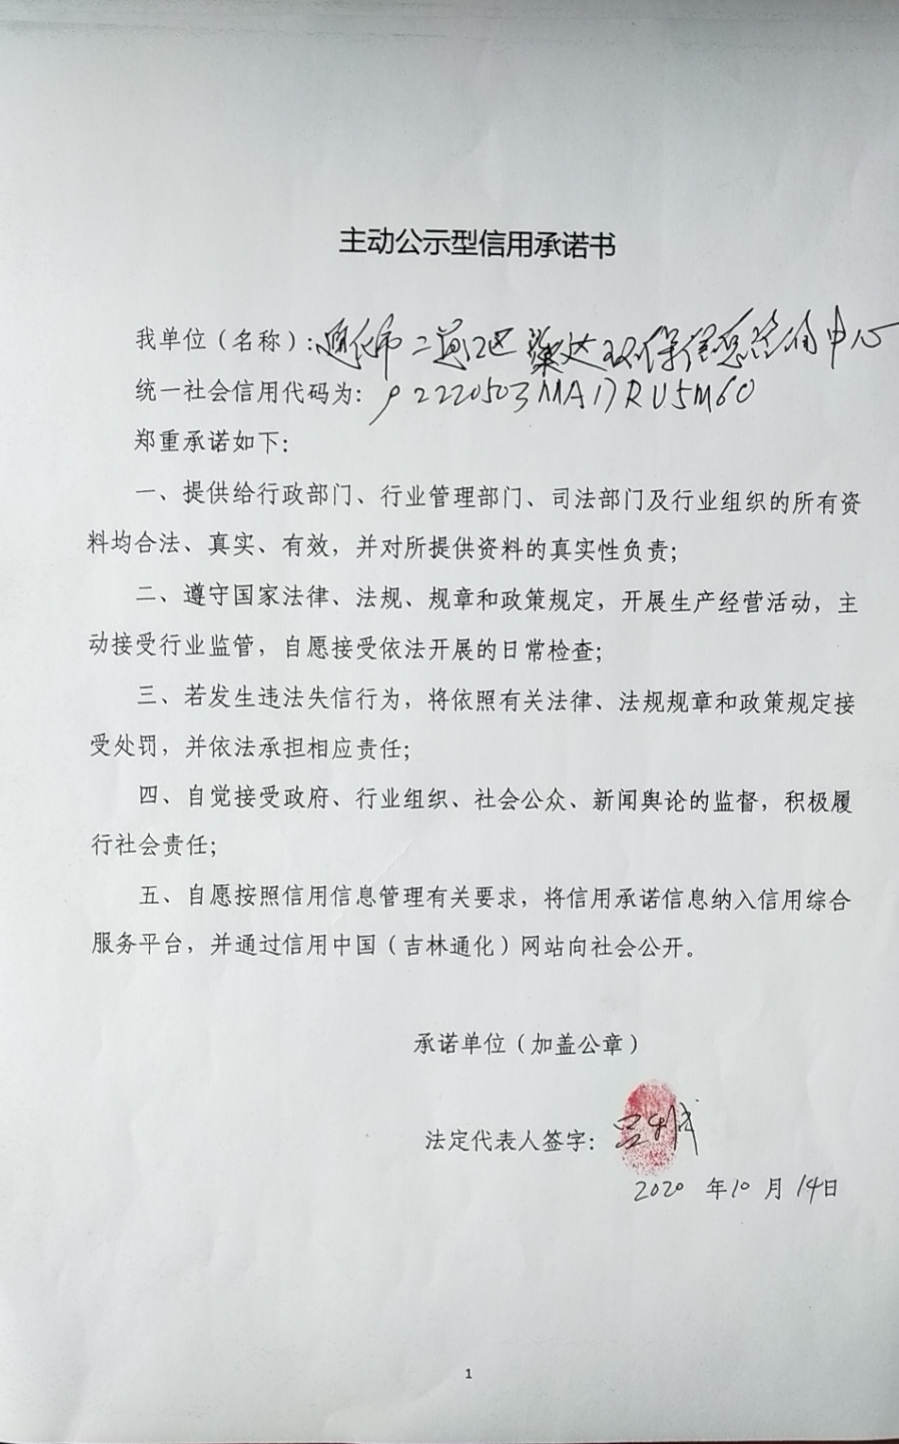 主动公示型信用承诺书
我单位（名称）：通化市二道江区 达 环保信息咨询中心
统一社会信用代码为：92220503MA17RU5M60
郑重承诺如下：
一、提供给行政部门、行业管理部门、司法部门及行业组织的所有资
料均合法、真实、有效，并对所提供资料的真实性负责；
二、遵守国家法律、法规、规章和政策规定，开展生产经营活动，主
动接受行业监管，自愿接受依法开展的日常检查；
三、若发生违法失信行为，将依照有关法律、法规规章和政策规定接
受处罚，并依法承担相应责任；
四、自觉接受政府、行业组织、社会公众、新闻舆论的监督，积极履
行社会责任；
五、自愿按照信用信息管理有关要求，将信用承诺信息纳入信用综合
服务平台，并通过信用中国（吉林通化）网站向社会公开。
承诺单位（加盖公章）
法定代表人签字：
2020 年10 月 14日
1